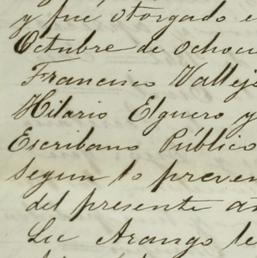 y fué otorgado e
Octubre de ochoci
Francisco Vallej
Hilario Elguero y
Escribano Público
segun lo preven
del presente a
Lic Arango le